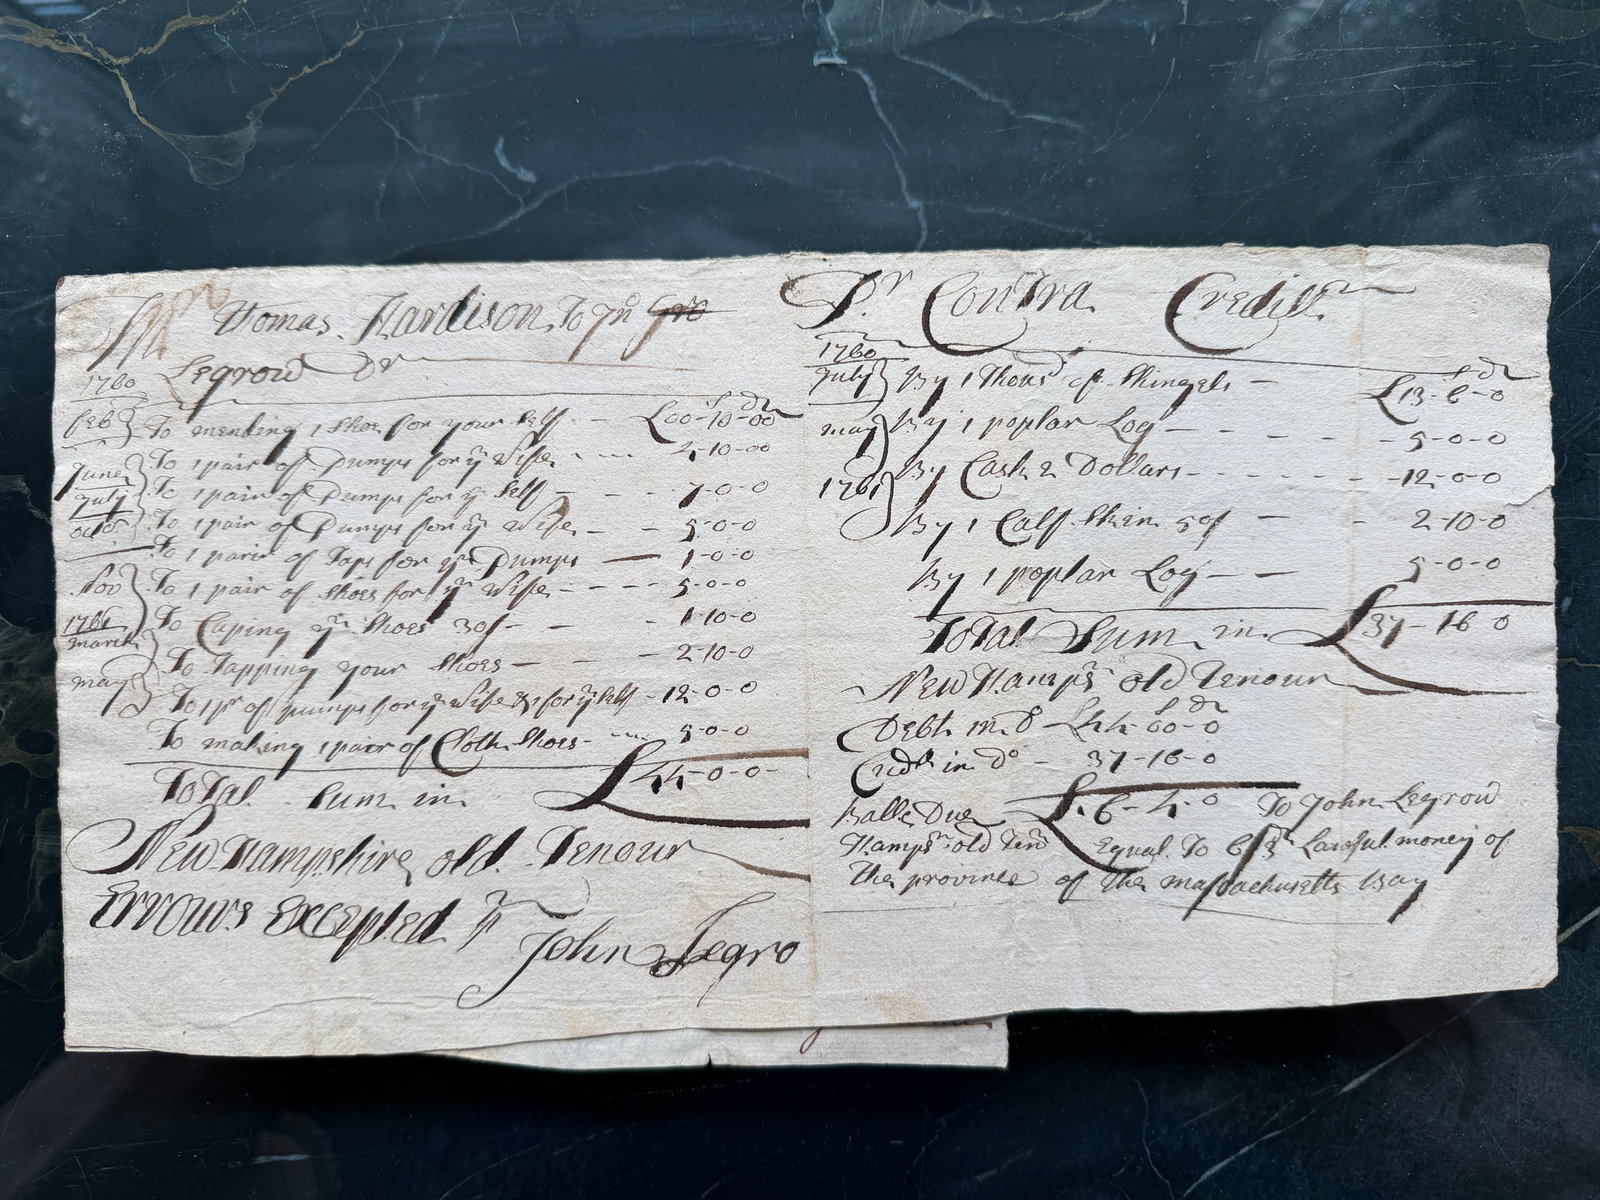 Mr Thomas Hardison To Jno Gro
Legrow Dr
1760
£ s d
feb To mending 1 Shoe for your Self — £00-10-00
June To 1 pair of Pumps for yr Wife 4-10-00
July To 1 pair of Pumps for yr Self — 7-0-0
octor To 1 pair of Pumps for yr Wife — 5-0-0
To 1 parir of Taps for yr Pumps — 1-0-0
Nov To 1 pair of Shoes for yr Wife — 5-0-0
1761 To Caping yr Shoes 30s — 1-10-0
march To Tapping your Shoes — 2-10-0
may To 1 pr of pumps for yr Wife & for yr Self — 12-0-0
To making 1 pair of Cloth Shoes — 5-0-0
Total Sum in £44-0-0
New Hampshire old Tenour
Errours Excepted pr
John Legro
Pr Contra Creditt
1760
£ s d
July By 1 Thousd of Shingels — £13-6-0
may By 1 poplar Log — 5-0-0
1761 By Cash 2 Dollars — 12-0-0
By 1 Calf Skin 50s — 2-10-0
By 1 poplar Log — 5-0-0
Total Sum in £37-16-0
New Hampsr old Tenour
£ s d
Debt in Do — £44-00-0
Credt in Do — 37-16-0
Balle Due £6-4-0 To John Legrow
Hampsr old Tenr Equal To 6/3 Lawful money of
the province of the massachusetts Bay